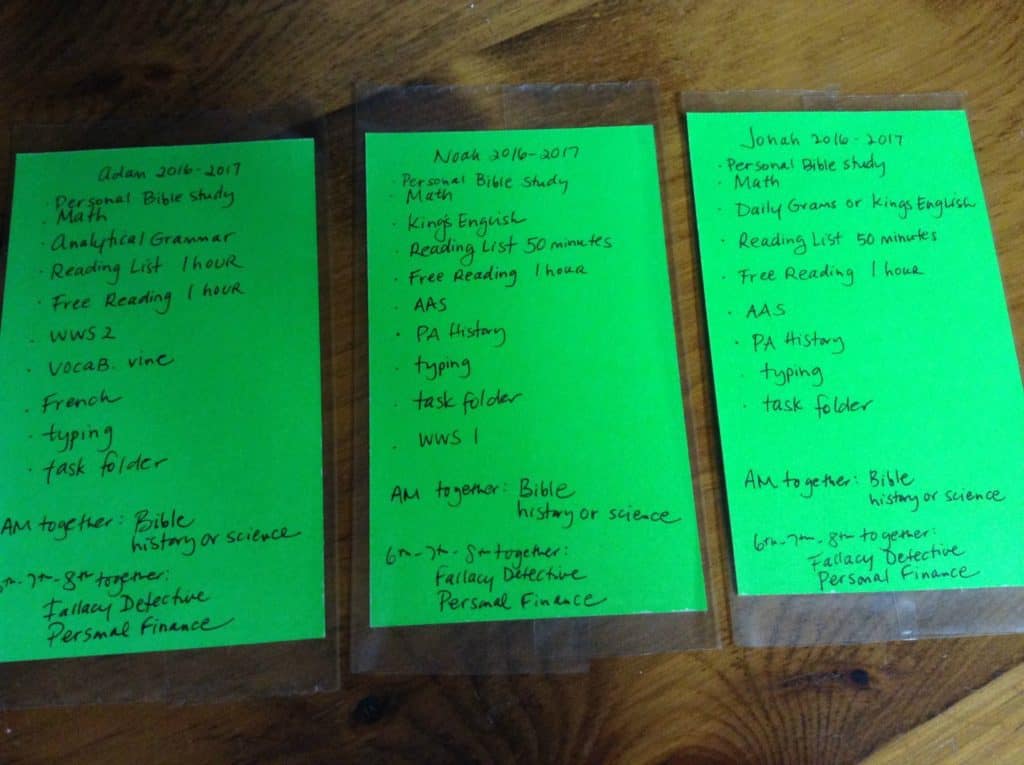 Adam 2016-2017
· Personal Bible Study
· Math
· Analytical Grammar
· Reading List 1 hour
· Free Reading 1 hour
· WWS 2
· Vocab. vine
· French
· typing
· task folder
AM together: Bible
history or science
6th-7th-8th together:
Fallacy Detective
Personal Finance
Noah 2016-2017
· Personal Bible Study
· Math
· King's English
· Reading List 50 minutes
· Free Reading 1 hour
· AAS
· PA History
· typing
· task folder
· WWS 1
AM together: Bible
history or science
6th-7th-8th together:
Fallacy Detective
Personal Finance
Jonah 2016-2017
· Personal Bible Study
· Math
· Daily Grams or King's English
· Reading List 50 minutes
· Free Reading 1 hour
· AAS
· PA History
· typing
· task folder
AM together: Bible
history or science
6th-7th-8th together:
Fallacy Detective
Personal Finance